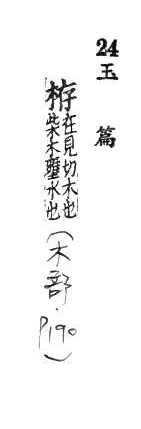 24
玉篇
栫在見切木也
柴木壅水也
(木部．P190)